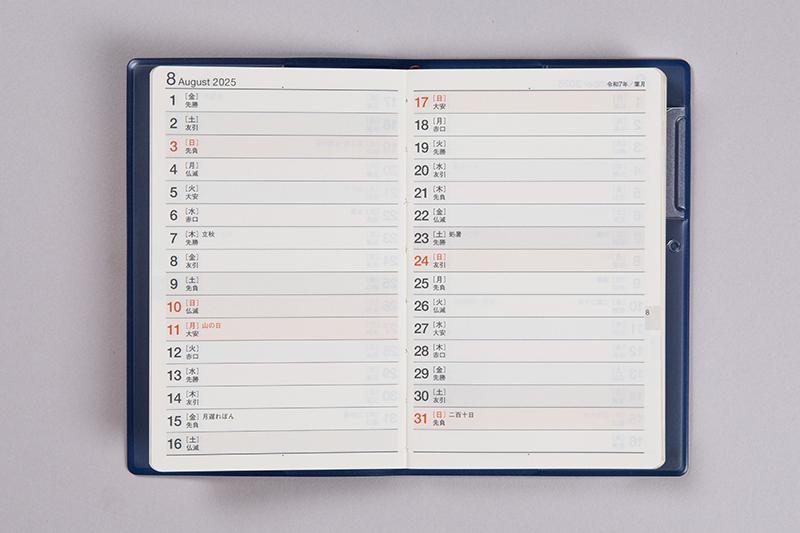 8 August 2025
1 [金]
先勝
2 [土]
友引
3 [日]
先負
4 [月]
仏滅
5 [火]
大安
6 [水]
赤口
7 [木] 立秋
先勝
8 [金]
友引
9 [土]
先負
10 [日]
仏滅
11 [月] 山の日
大安
12 [火]
赤口
13 [水]
先勝
14 [木]
友引
15 [金] 月遅れぼん
先負
16 [土]
仏滅
令和7年 葉月
17 [日]
大安
18 [月]
赤口
19 [火]
先勝
20 [水]
友引
21 [木]
先負
22 [金]
仏滅
23 [土] 処暑
先勝
24 [日]
友引
25 [月]
先負
26 [火]
仏滅
27 [水]
大安
28 [木]
赤口
29 [金]
先勝
30 [土]
友引
31 [日] 二百十日
先負
8